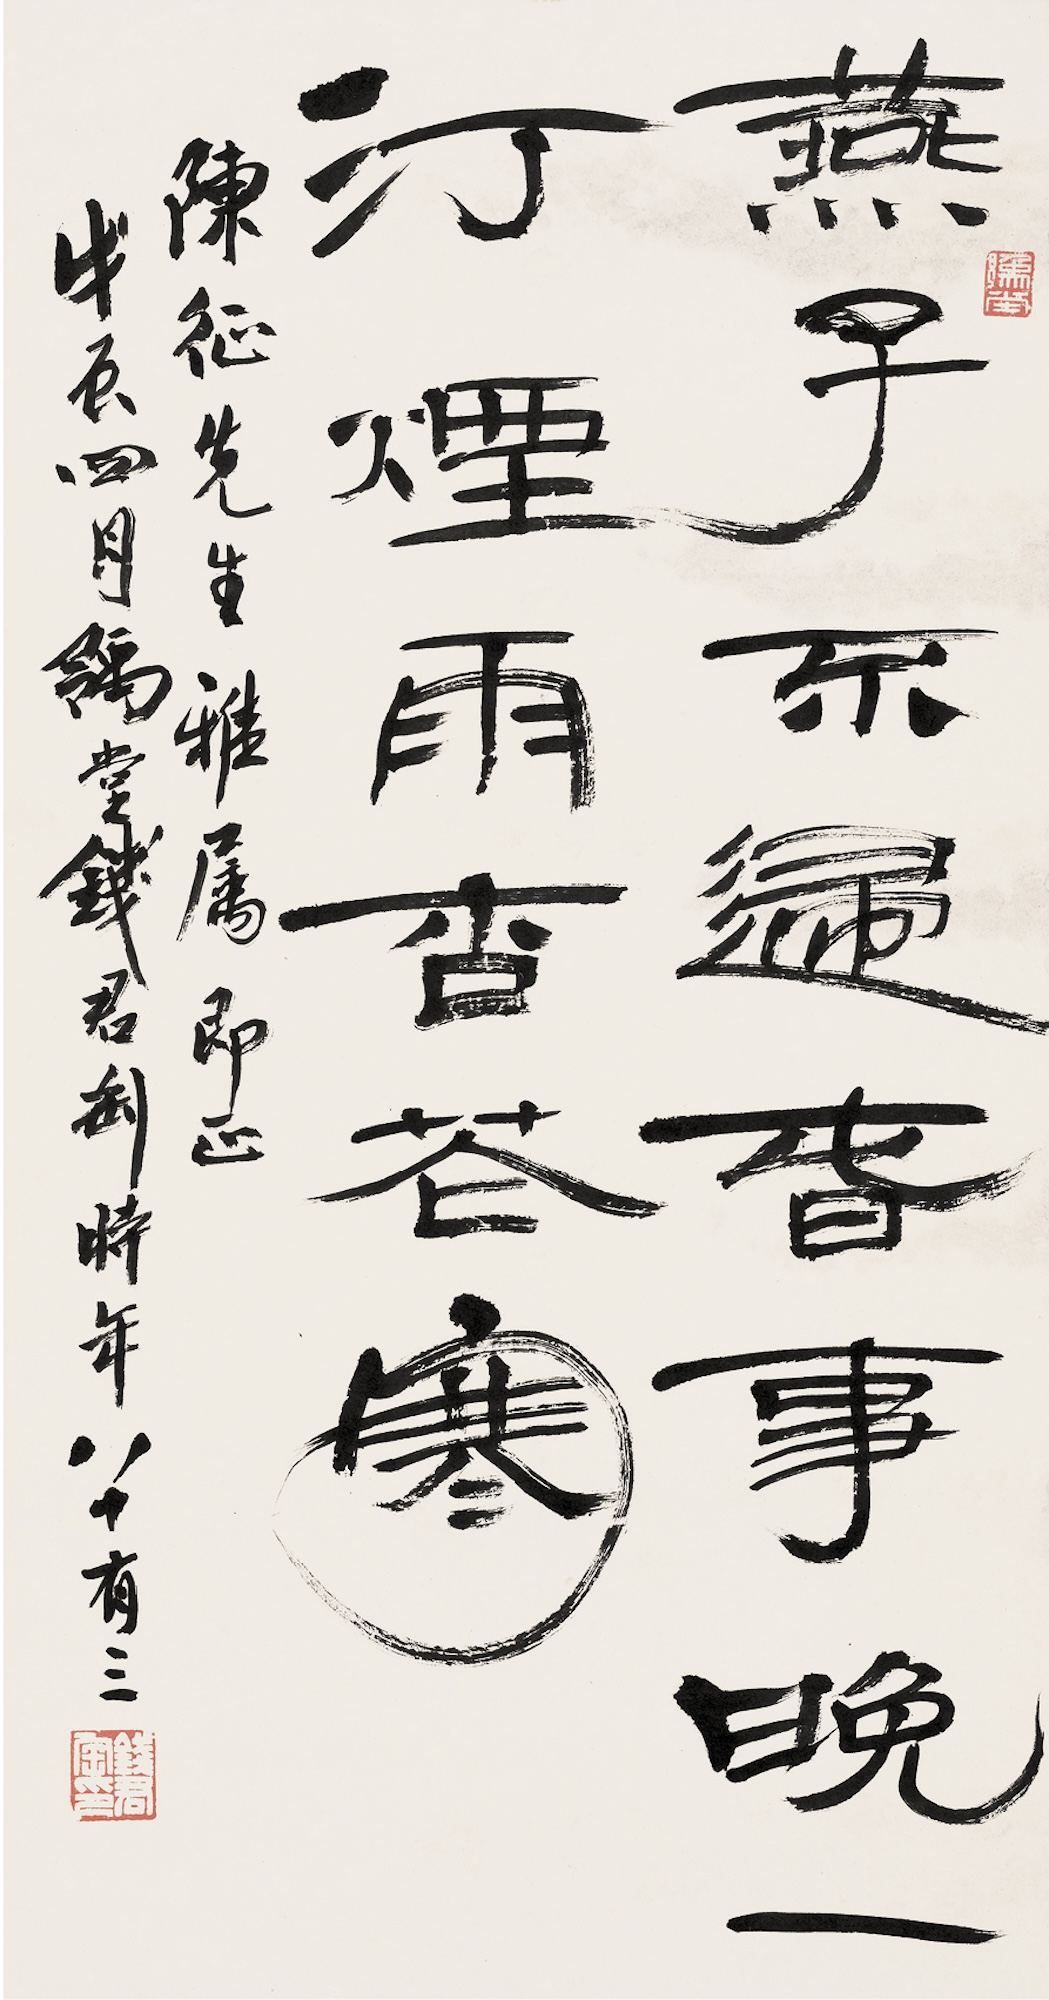 燕子不歸春事晚一
汀煙雨杏花寒
陳征先生雅屬即正
戊辰四月豫堂錢君匋時年八十有三
豫堂
錢君匋印